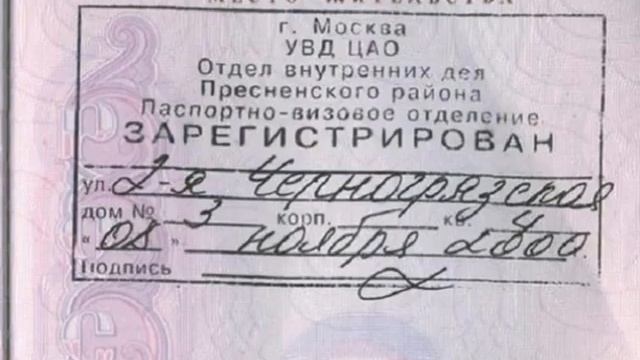 МЕСТО ЖИТЕЛЬСТВА
г. Москва
УВД ЦАО
Отдел внутренних дел
Пресненского района
Паспортно-визовое отделение
ЗАРЕГИСТРИРОВАН
ул. 2-я Черногрязская
дом № 3 корп. Г кв. 4
"08" ноября 2000.
Подпись